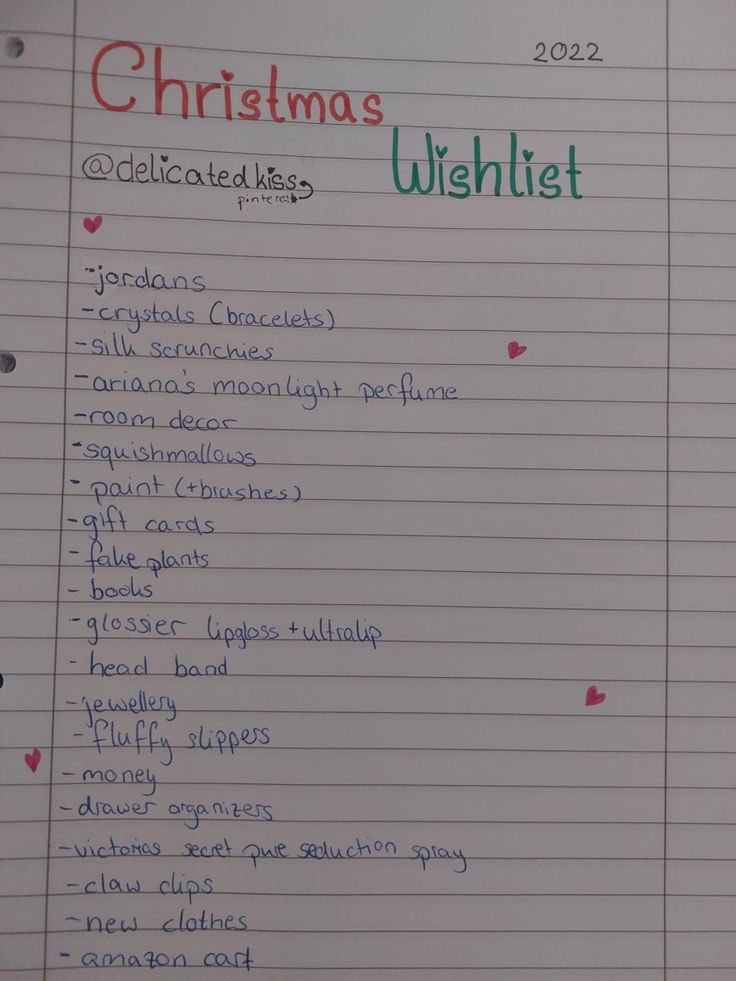 2022
Christmas
Wishlist
@delicatedkiss
pinterest
-jordans
-crystals (bracelets)
-silk scrunchies
-ariana's moonlight perfume
-room decor
-squishmallows
- paint (+brushes)
-gift cards
- fake plants
- books
-glossier lipgloss + ultralip
- head band
-jewellery
-fluffy slippers
- money
-drawer organizers
-victorias secret pure seduction spray
-claw clips
-new clothes
- amazon cart